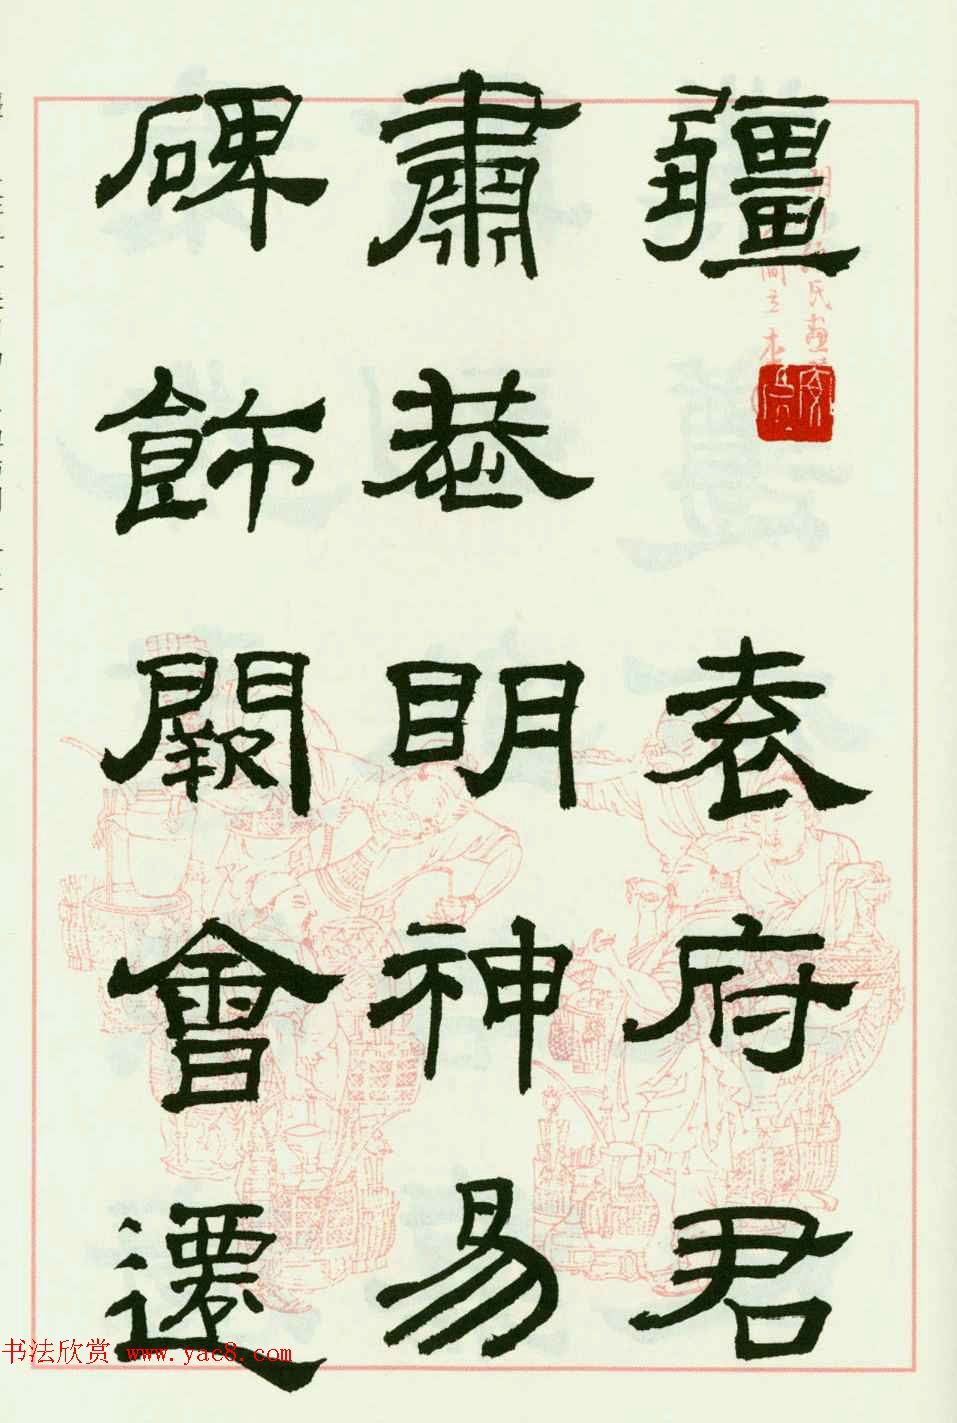 疆 袁府君
肅恭明神易
碑飾闕會遷
书法欣赏 www.yac8.com